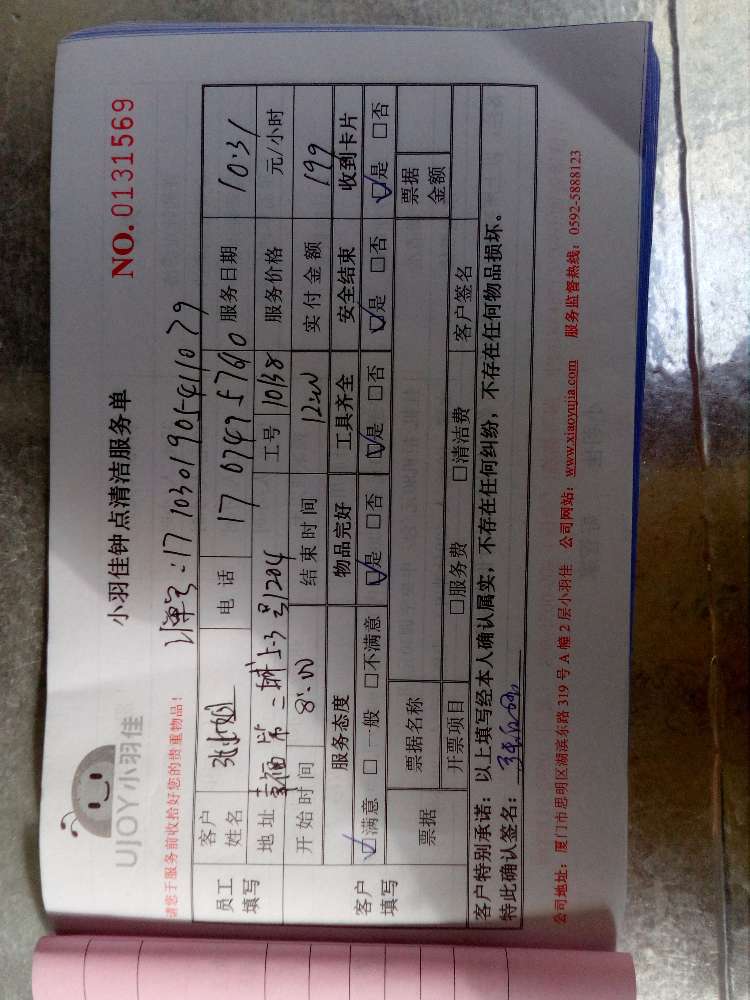 UJOY小羽佳
小羽佳钟点清洁服务单
NO. 0131569
请您于服务前收拾好您的贵重物品!
订单号:1710301905411079
员工填写
客户姓名 电话 17074757610 服务日期 10.31
地址 二期 1204 工号 10138 服务价格 元/小时
开始时间 8:00 结束时间 12:00 实付金额 199
客户填写
服务态度 物品完好 工具齐全 安全结束 收到卡片
☑满意 □一般 □不满意 ☑是 □否 ☑是 □否 ☑是 □否 ☑是 □否
票据 票据名称 票据金额
开票项目 □服务费 □清洁费 客户签名
客户特别承诺:以上填写经本人确认属实,不存在任何纠纷,不存在任何物品损坏。
特此确认签名:
公司地址:厦门市思明区湖滨东路 319 号 A 幢 2 层小羽佳 公司网站:www.xiaoyujia.com 服务监督热线:0592-5888123